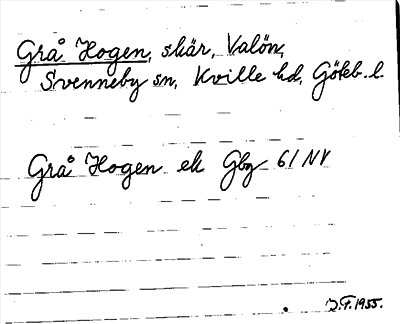 Grå Hogen, skär, Valön,
Svenneby sn, Kville hd, Göteb. l.
Grå Hogen ek Gbg 61 NV
J.F. 1955.